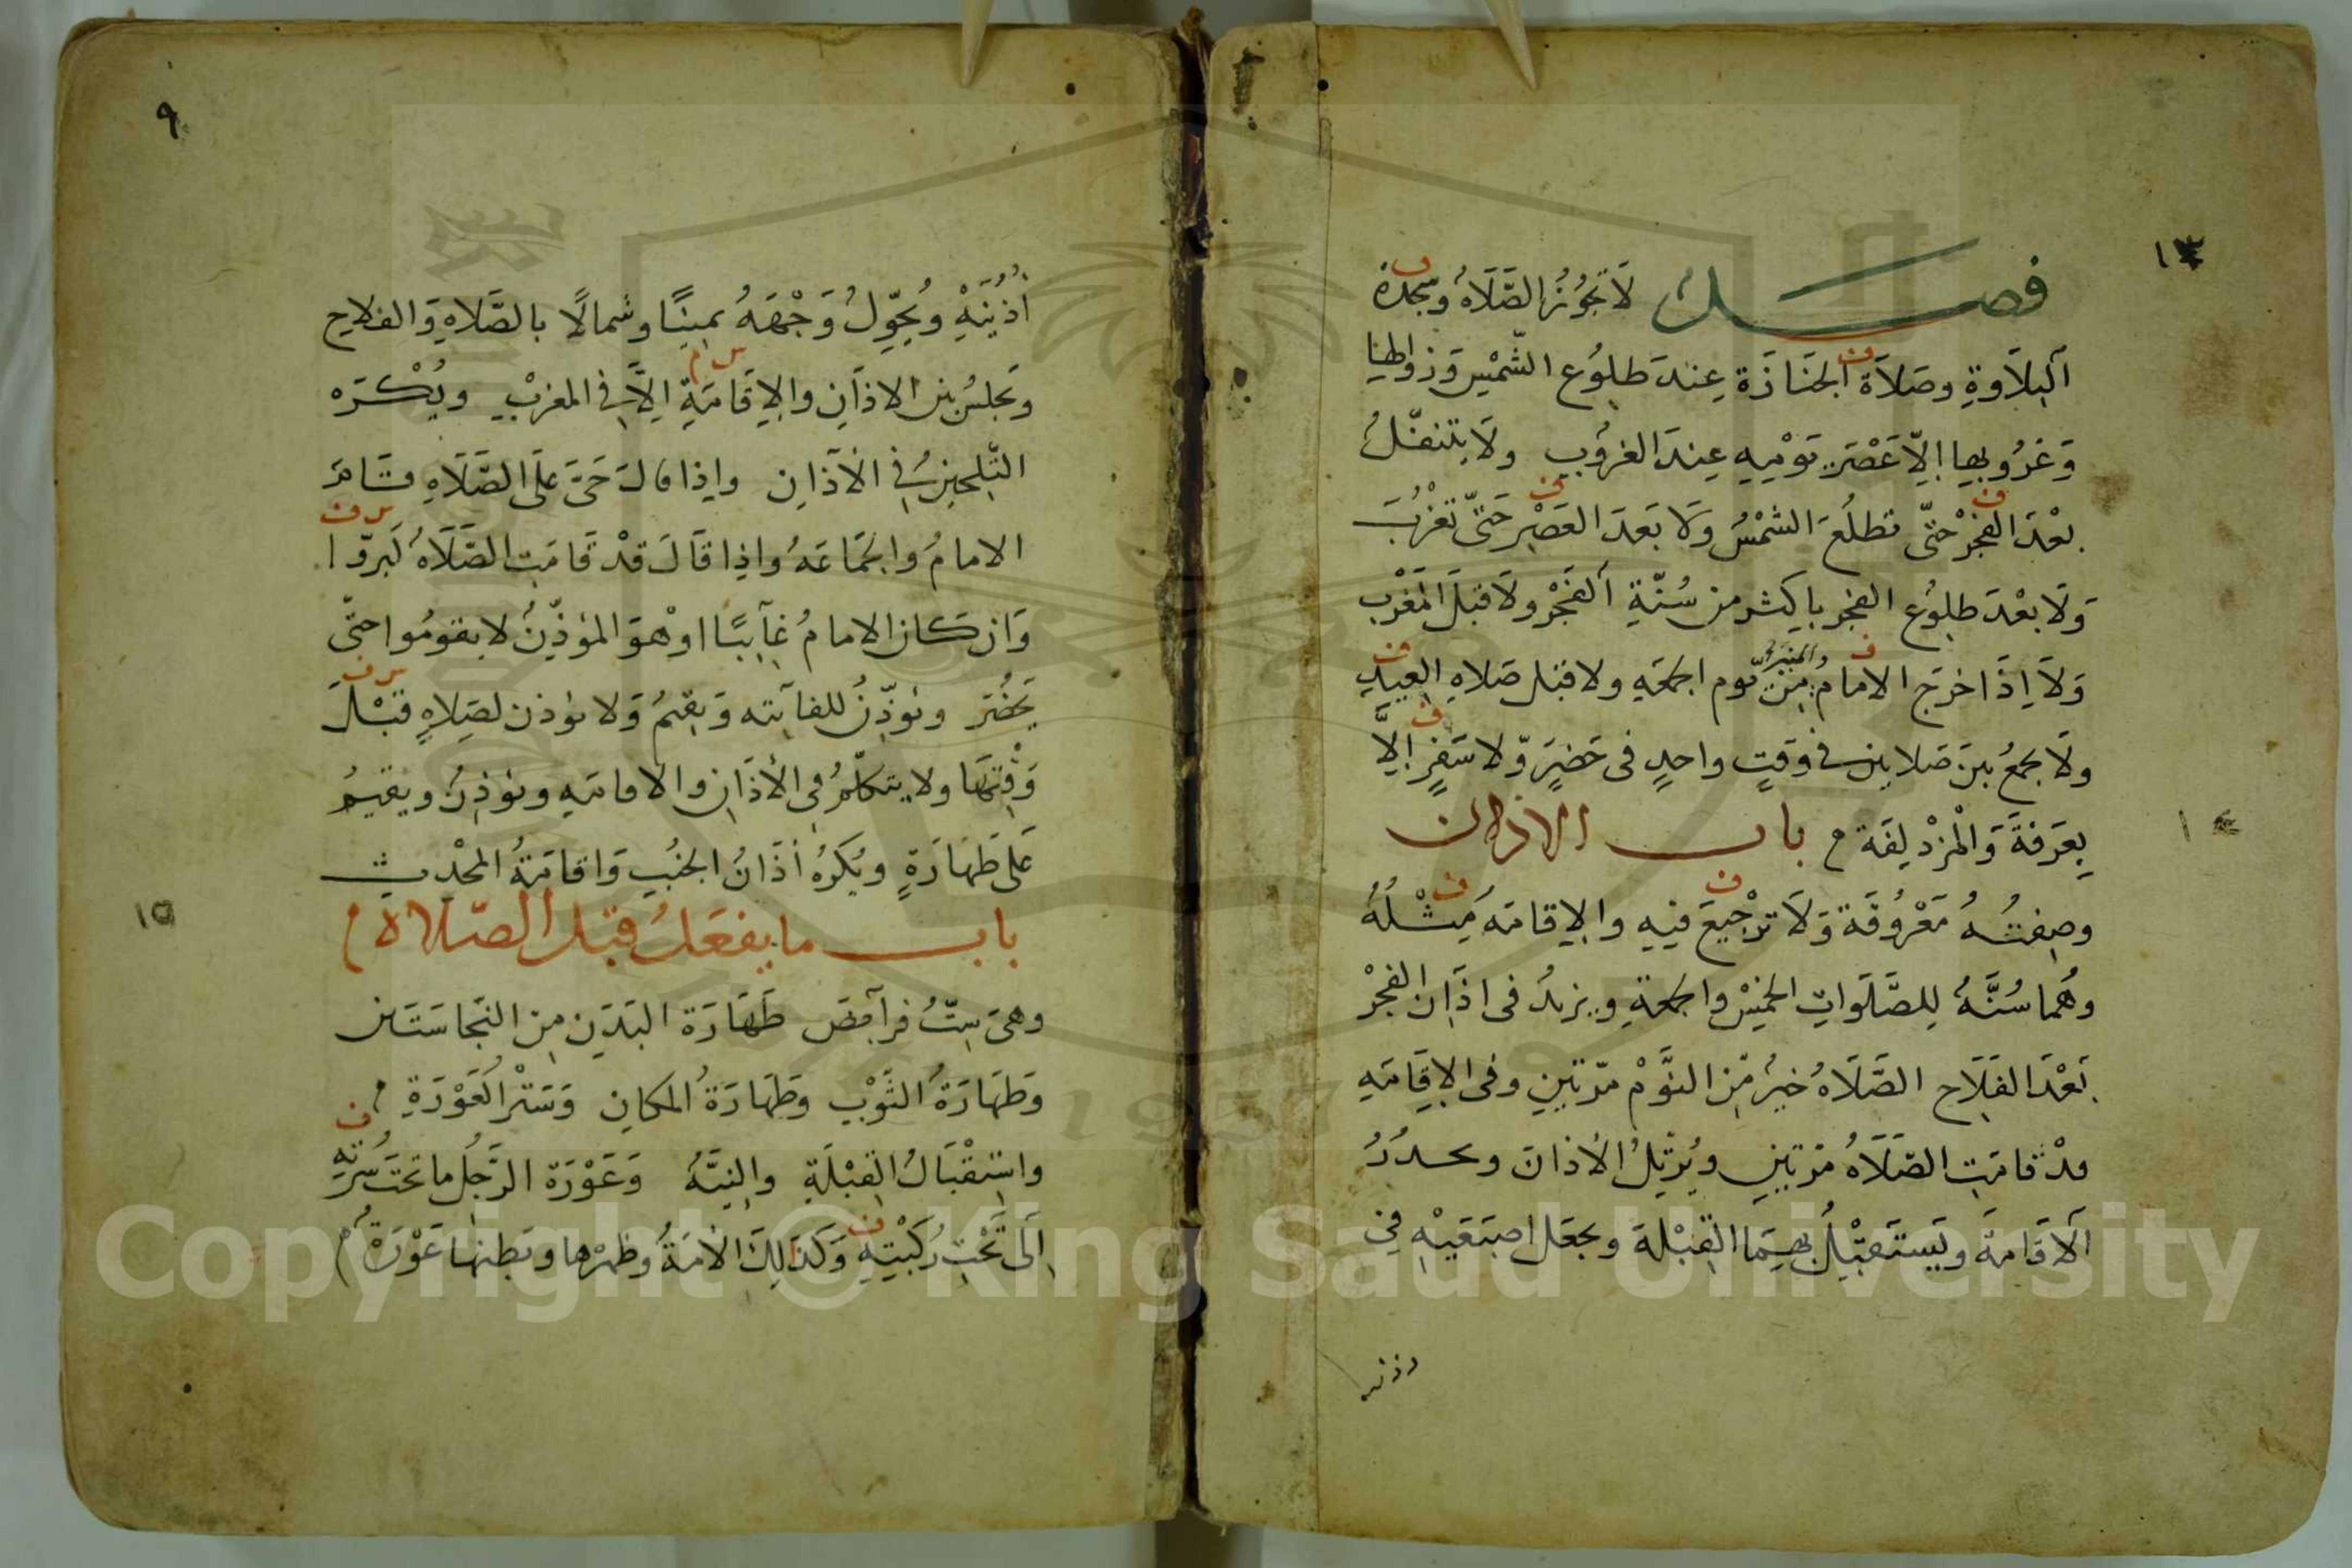 ١٣
فصل لَا تَجُوزُ الصَّلَاةُ وسجدة
التِلَاوَةِ وصَلَاة الجَنَازَة عِندَ طلوُع الشّمْسِ وَزوالها
وَغرُوبهِا اِلاّ عَصْرَ يَوْمِهِ عِندَ الغرُوب ولَا يتنفّلُ
بعْدَ الفَجْرْ حتّى تطلُعَ الشمْسُ وَلَا بَعدَ العَصْرِ حَتّى تَغْرُبَ
وَلَا بعْدَ طلوُع الفجر باكثر من سُنّةِ الفَجْرْ ولَا قبْلَ المَغْرِب
وَلَا اِذَا خرَجَ الامامُ يَوم الجمعَهِ ولا قبل صَلاهِ العِيدِ
ولَا يجمعُ بينَ صَلاتين فى وَقتٍ واحدٍ فى حَضرٍ وّلا سَفرٍ اِلَّا
بِعَرَفةَ وَالْمزْدَلِفَة م باب الاذان
وصِفتُهُ مَعْرُوُفَة وَلَا تَرْجِيعَ فيِهِ والاِقامَهُ مِثْلُهُ
وهُما سُنَّهُ لِلصَّلَواتِ الخمْسْ والجمعَةِ ويزيدُ فى اذَان الفجْرْ
بَعْدَ الفَلَاح الصَّلَاهُ خيرٌ مّن النَّوْم مرّتينِ وفى الاِقَامَهِ
قدْ قامَتِ الصَّلَاهُ مَرّتينِ ويُرتِّلُ الأذانَ ويحدرُ
الاقَامَةَ ويَستَقبِلُ بهِمَا القِبْلَةَ ويجعَل اصبَعَيْهِ فِى
اذنيه
١٤
٩
اُذُنَيْهِ ويُحَوِّلُ وَجْهَهُ يمينًا وشمالًا بالصَّلَاةِ وَالفلاح
وَيجلسُ بين الاذَانِ والاِقَامَةِ اِلَّا فِى المغربْ ويُكْرَه
التَّلحِينُ فِى الأذَانِ واِذا قالَ حَىَّ عَلَى الصَّلَاهِ قَامَ
الامامُ والجَمَاعَهُ واِذِا قَالَ قدْ قَامَتِ الصَّلَاهُ كَبرّوا
وَان كَان الامامُ غَآيبًا اوْ هوَ المؤذِّنُ لا يقومُوا حتّى
يَحْضُرَ ويُوَذّنُ للفآيته وَيقيمُ وَلا يؤذن لصَلاهٍ قبْلَ
وَقْتِهَا ولا يتكلّمُ فِى الأذَانِ والاقامَهِ ويؤذِنُ ويقيمُ
عَلى طَهَارَةٍ ويُكرَهُ أذَانُ الجنُبِ وَاقامَةُ المحْدِثِ
١٥
باب ما يفعَلُ قبل الصّلاة م
وهىَ سِتُّ فرآيضَ طَهَارَة البَدَنِ مِن النّجاسَتَين
وَطَهَارَةُ الثَّوْبِ وَطَهَارَةُ المكانِ وَسَتْرُ العَوْرَةِ م
واستِقْبَالُ القِبْلَةِ والنِيَّهُ وَعَوْرَة الرَّجُلِ ما تحتَ سُرّتهِ
اِلَى تَحْتِ رُكبْتِهِ وَكذَلِكَ الأمَةُ وظهرُها وبَطنها عَوْرَةٌ م
Copyright © King Saud University
1957